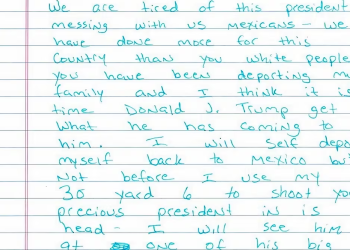 We are tired of this president
messing with us Mexicans - we
have done more for this
country than you white people
you have been deporting m
family and I think it is
time Donald J. Trump get
what he has coming to
him. I will self depo
myself back to Mexico bu
Not before I use my
30 yard 6 to shoot yo
precious president in is
head - I will see him
at one of his big